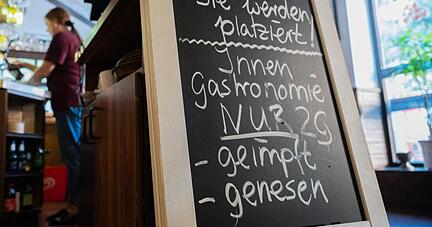 Sie werden
platziert!
Innen
gastronomie
NUR 2G
- geimpft
- genesen